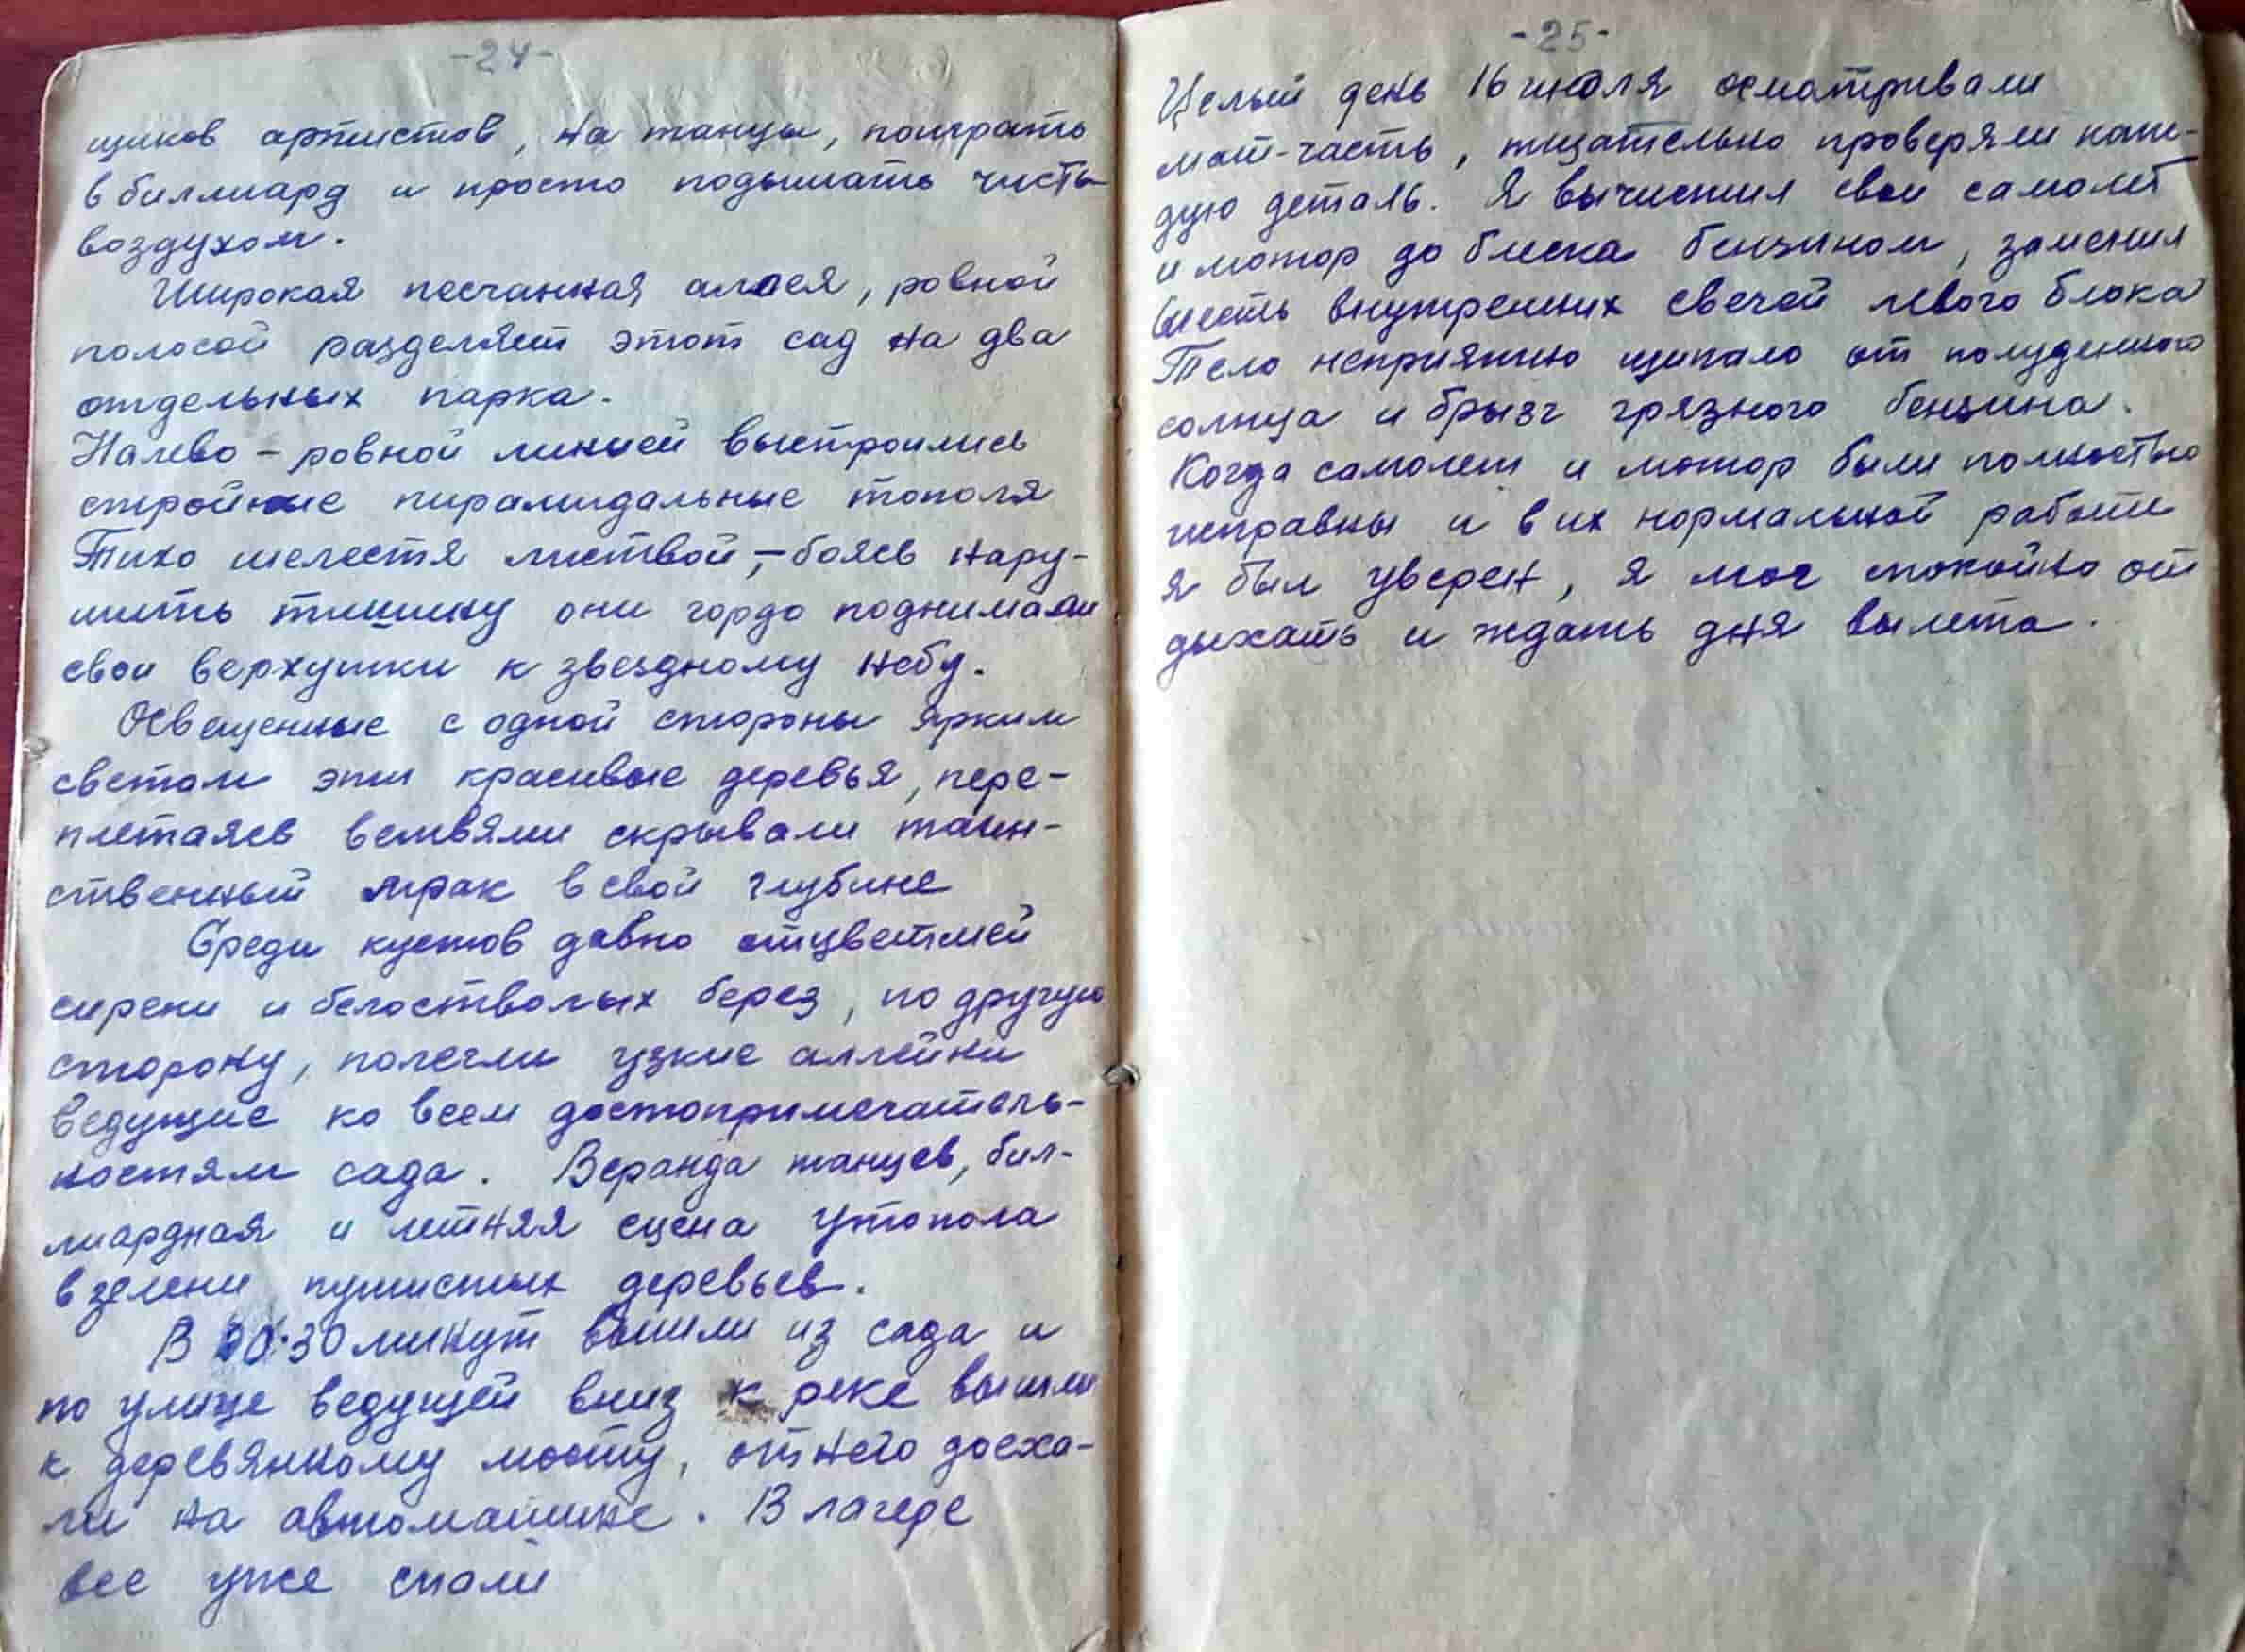 -24-
щиков артистов, на танцы, поиграть
в биллиард и просто подышать чисты
воздухом.
Широкая песчанная алоея, ровной
полосой разделяет этот сад на два
отдельных парка.
Налево - ровной линией выстроились
стройные пирамидальные тополя
Тихо шелестя листвой, - боясь нару-
шить тишину они гордо поднимали
свои верхушки к звездному небу.
Освещенные с одной стороны ярким
светом эти красивые деревья, пере-
плетаясь ветвями скрывали таин-
ственный мрак в свой глубине
Среди кустов давно отцветшей
сирени и белоствольых берез, по другую
сторону, полегли узкие аллейки
ведущие ко всем достопримечатель-
ностям сада. Веранда танцев, бил-
лиардная и летняя сцена утопола
в зелени пушистых деревьев.
В 00·30 минут вышли из сада и
по улице ведущей вниз к реке вышли
к деревянному мосту, от него доеха-
ли на автомашине. В лагере
все уже спали
-25-
Целый день 16 июля осматривали
мат-часть, тщательно проверяли каж-
дую деталь. Я вычистил свой самолет
и мотор до блеска бензином, заменил
шесть внутренних свечей левого блока
Тело неприятно щипало от полуденного
солнца и брызг грязного бензина.
Когда самолет и мотор были полностью
исправны и в их нормальной работе
я был уверен, я мог спокойно от
дыхать и ждать дня вылета.